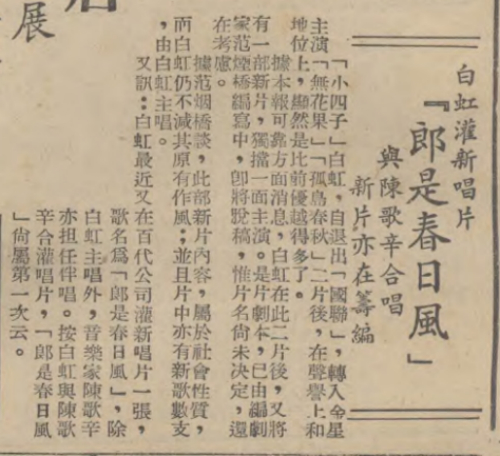 展
白虹灌新唱片
『郎是春日風』
與陳歌辛合唱
新片亦在籌編
「小四子」白虹，自退出「國聯」，轉入金星
主演「無花果」「孤島春秋」二片後，在聲譽上和
地位上，顯然是比前優越得多了。
據本報可靠方面消息，白虹在此二片後，又將
有一部新片，獨擋一面主演。是片劇本，已由編劇
家范煙橋編寫中，卽將脫稿，惟片名尙未决定，還
在考慮。
據范烟橋談，此部新片內容，屬於社會性質，
而白虹仍不減其原有作風；並且片中亦有新歌數支
，由白虹主唱。
又訊：白虹最近又在百代公司灌新唱片一張，
歌名爲「郎是春日風」，除
白虹主唱外，音樂家陳歌辛
亦担任伴唱。按白虹與陳歌
辛合灌唱片，「郎是春日風
」尙屬第一次云。